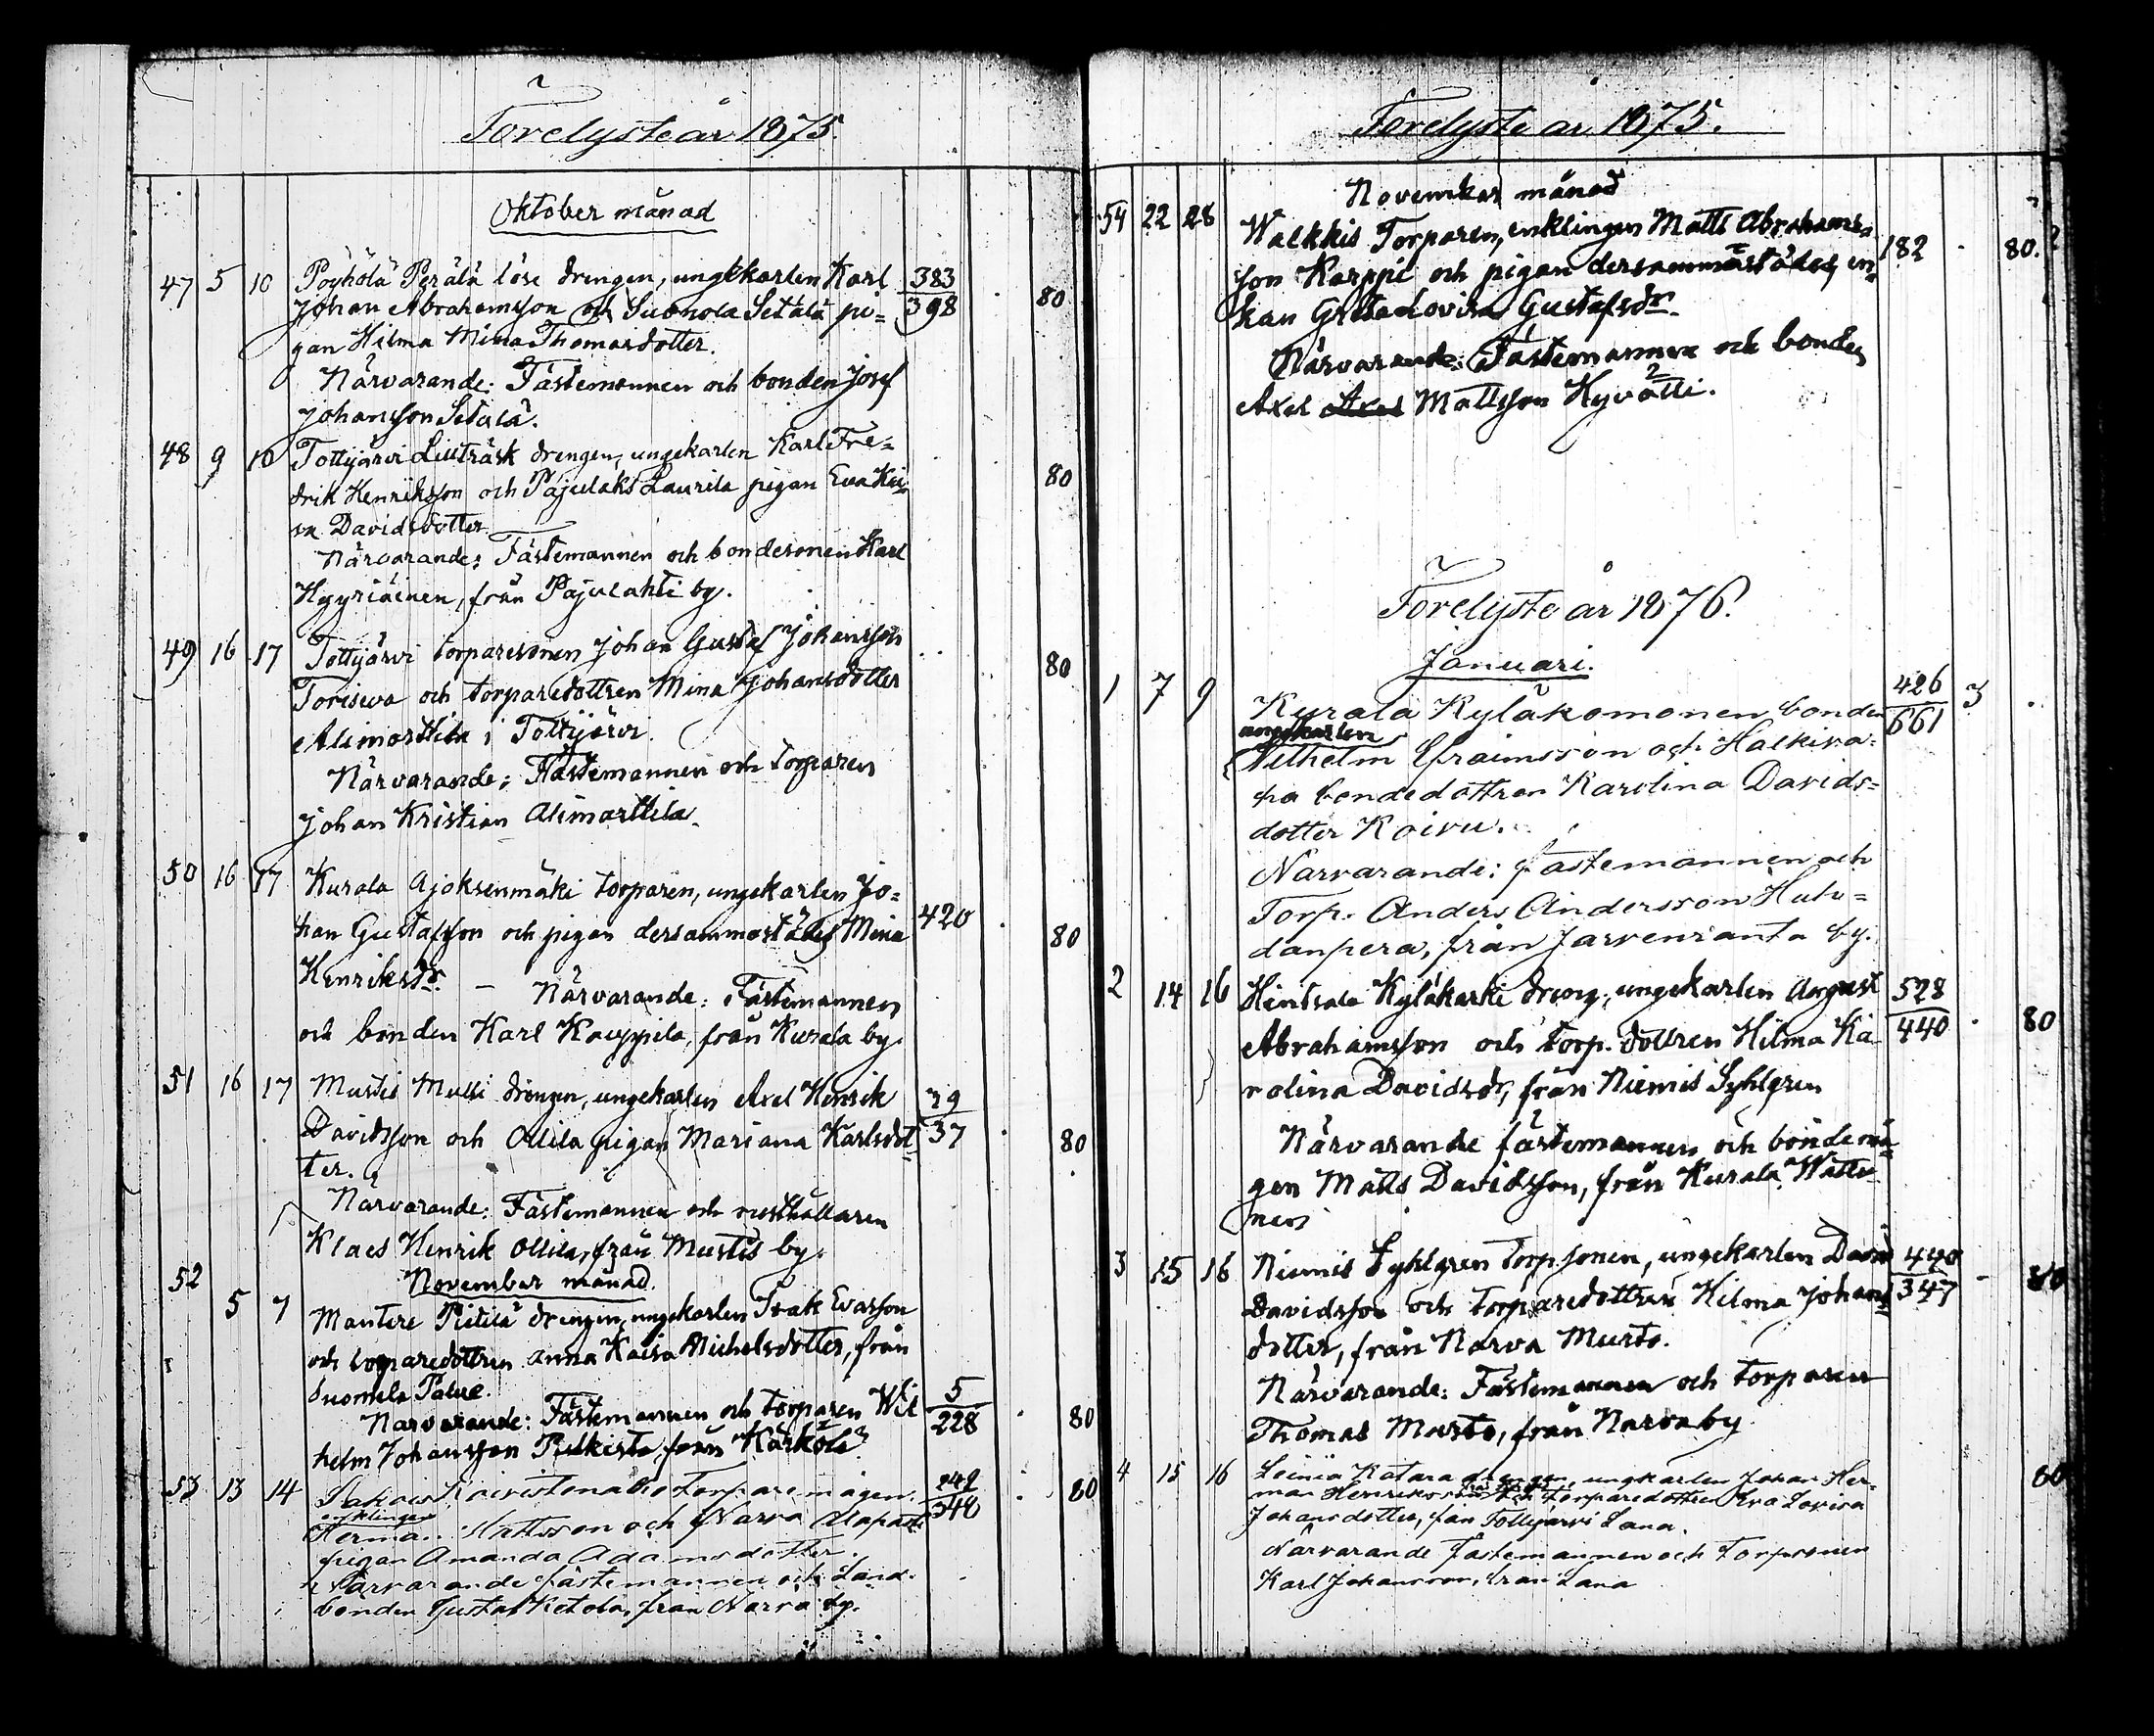 Förelyste år 1875.
Oktober månad
47 5 10 Pöyhölä Perälä löse drengen, ungkarlen Karl 383
Johan Abrahamsson och Suonola Setälä pi= 398 80
gan Hilma Mina Thomasdotter.
Närvarande: Fästemannen och bonden Josef
Johansson Setälä.
48 9 10 Tottijärvi Liuträsk drengen, ungekarlen Karl Fre=
drik Henriksson och Pajulaks Laurila pigan Eva 80
Davidsdotter
Närvarande: Fästemannen och bondesonen Karl
Hyyriäinen, från Pajulahti by.
49 16 17 Tottijärvi torparesonen Johan Gustaf Johansson
Toriseva och torparedottren Mina Johansdotter 80
Alimarttila i Tottijärvi.
Närvarande: Fästemannen och torparen
Johan Kristian Alimarttila.
50 16 17 Kurala Ajoksenmäki torparen, ungekarlen Jo=
han Gustafsson och pigan dersammastädes Mina 420 80
Henriksdr. – Närvarande: Fästemannen
och bonden Karl Kauppila, från Kurala by.
51 16 17 Mustis Mulli drengen, ungekarlen Axel Henrik 39
Davidsson och Ollila pigan Mariana Karlsdot= 37 80
ter.
Närvarande: Fästemannen och rusthållaren
Klaes Henrik Ollila, från Mustis by.
52 November månad.
5 7 Mantere Pietilä drengen, ungekarlen Isak Evasson
och torparedottren Anna Kaisa Michelsdotter, från
Suomela Palue.
Närvarande: Fästemannen och torparen Wil 5
helm Johansson Pulkisto, från Kärkölä 228 80
53 13 14 torparemågen 242
enklingen
Herman Mattsson och Narva Alapast 348 80
pigan Amanda Adamsdotter.
Närvarande fästemannen och Land=
bonden Gustaf Ketola, från Narva by.
Förelyste år 1875.
November månad
54 22 28 Walkkis Torparen, enklingen Matts Abrahams=
son Karppi och pigan dersammastädes, en= 182 80.
kan Greta Lovisa Gustafsdr.
Närvarande: Fästemannen och bonden
Axel Axel Mattsson Hyvätti.
Förelyste år 1876.
Januari.
1 7 9 Kurala Kyläkomonen bonden 426 3
ungekarlen 661
Wilhelm Efraimsson och Halkiva=
ha bondedottren Karolina Davids=
dotter Koivu.
Närvarande: fästemannen och
Torp. Anders Andersson Huh=
danpera, från Jarvenranta by.
2 14 16 Hintsala Kyläkarki dreng, ungekarlen August 528
Abrahamsson och torp. dottren Hilma Ka= 440 80
rolina Davidsdr, från Niemis Syhlgren
Närvarande fästemannen och bondemå=
gen Matts Davidsson, från Kurala Watti
nen
3 15 16 Niemis Syhlgren torp.sonen, ungekarlen David 440
Davidsson och torparedottren Hilma Johans 347 80
dotter, från Narva Murto.
Närvarande: Fästemannen och torparen
Thomas Murto, från Narva by.
4 15 16 Leiniä Katara drengen, ungkarlen Johan Her=
man Henriksson och torparedottren Eva Lovisa 80
Johansdotter, från Tottijärvi Lana.
Närvarande fästemannen och Torpsonen
Karl Johansson, från Lana